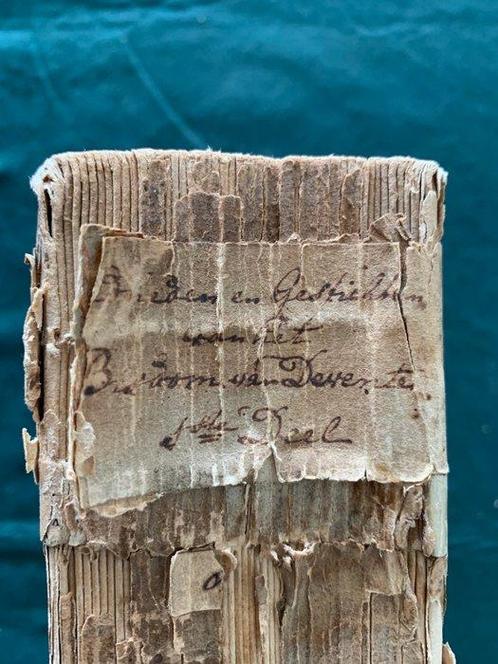 Oudheden en Gestichten
van het
Bisdom van Deventer
1ste Deel